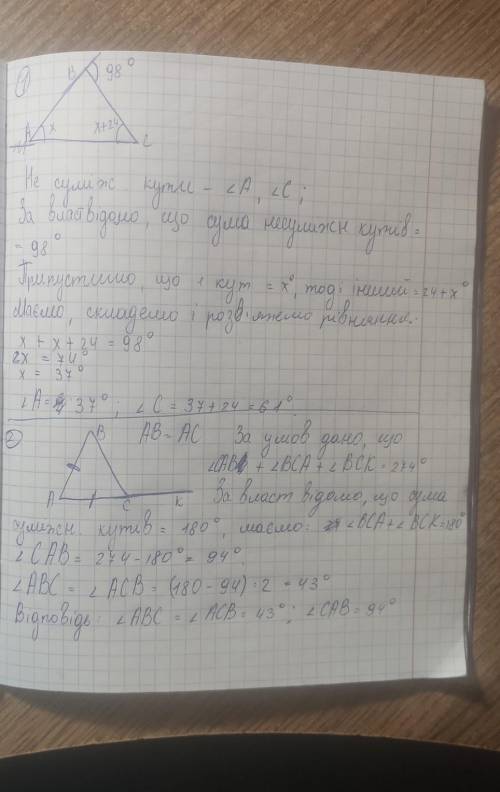 1
B 98°
A x x+24 C
Не суміж кути - ∠A, ∠C;
За власт відомо, що сума несуміжн кутів =
= 98°
Припустимо, що 1 кут = x°, тоді інший = 24 + x°
Маємо, складемо і розв'яжемо рівняння.
x + x + 24 = 98°
2x = 74°
x = 37°
∠A = 37°; ∠C = 37+24 = 61°
2
B AB = AC За умов дано, що
∠AB + ∠BCA + ∠BCK = 274°
A C K За власт відомо, що сума
суміжн. кутів = 180°, маємо: ∠BCA + ∠BCK = 180°
∠CAB = 274 - 180° = 94°.
∠ABC = ∠ACB = (180 - 94) : 2 = 43°
Відповідь: ∠ABC = ∠ACB = 43°; ∠CAB = 94°